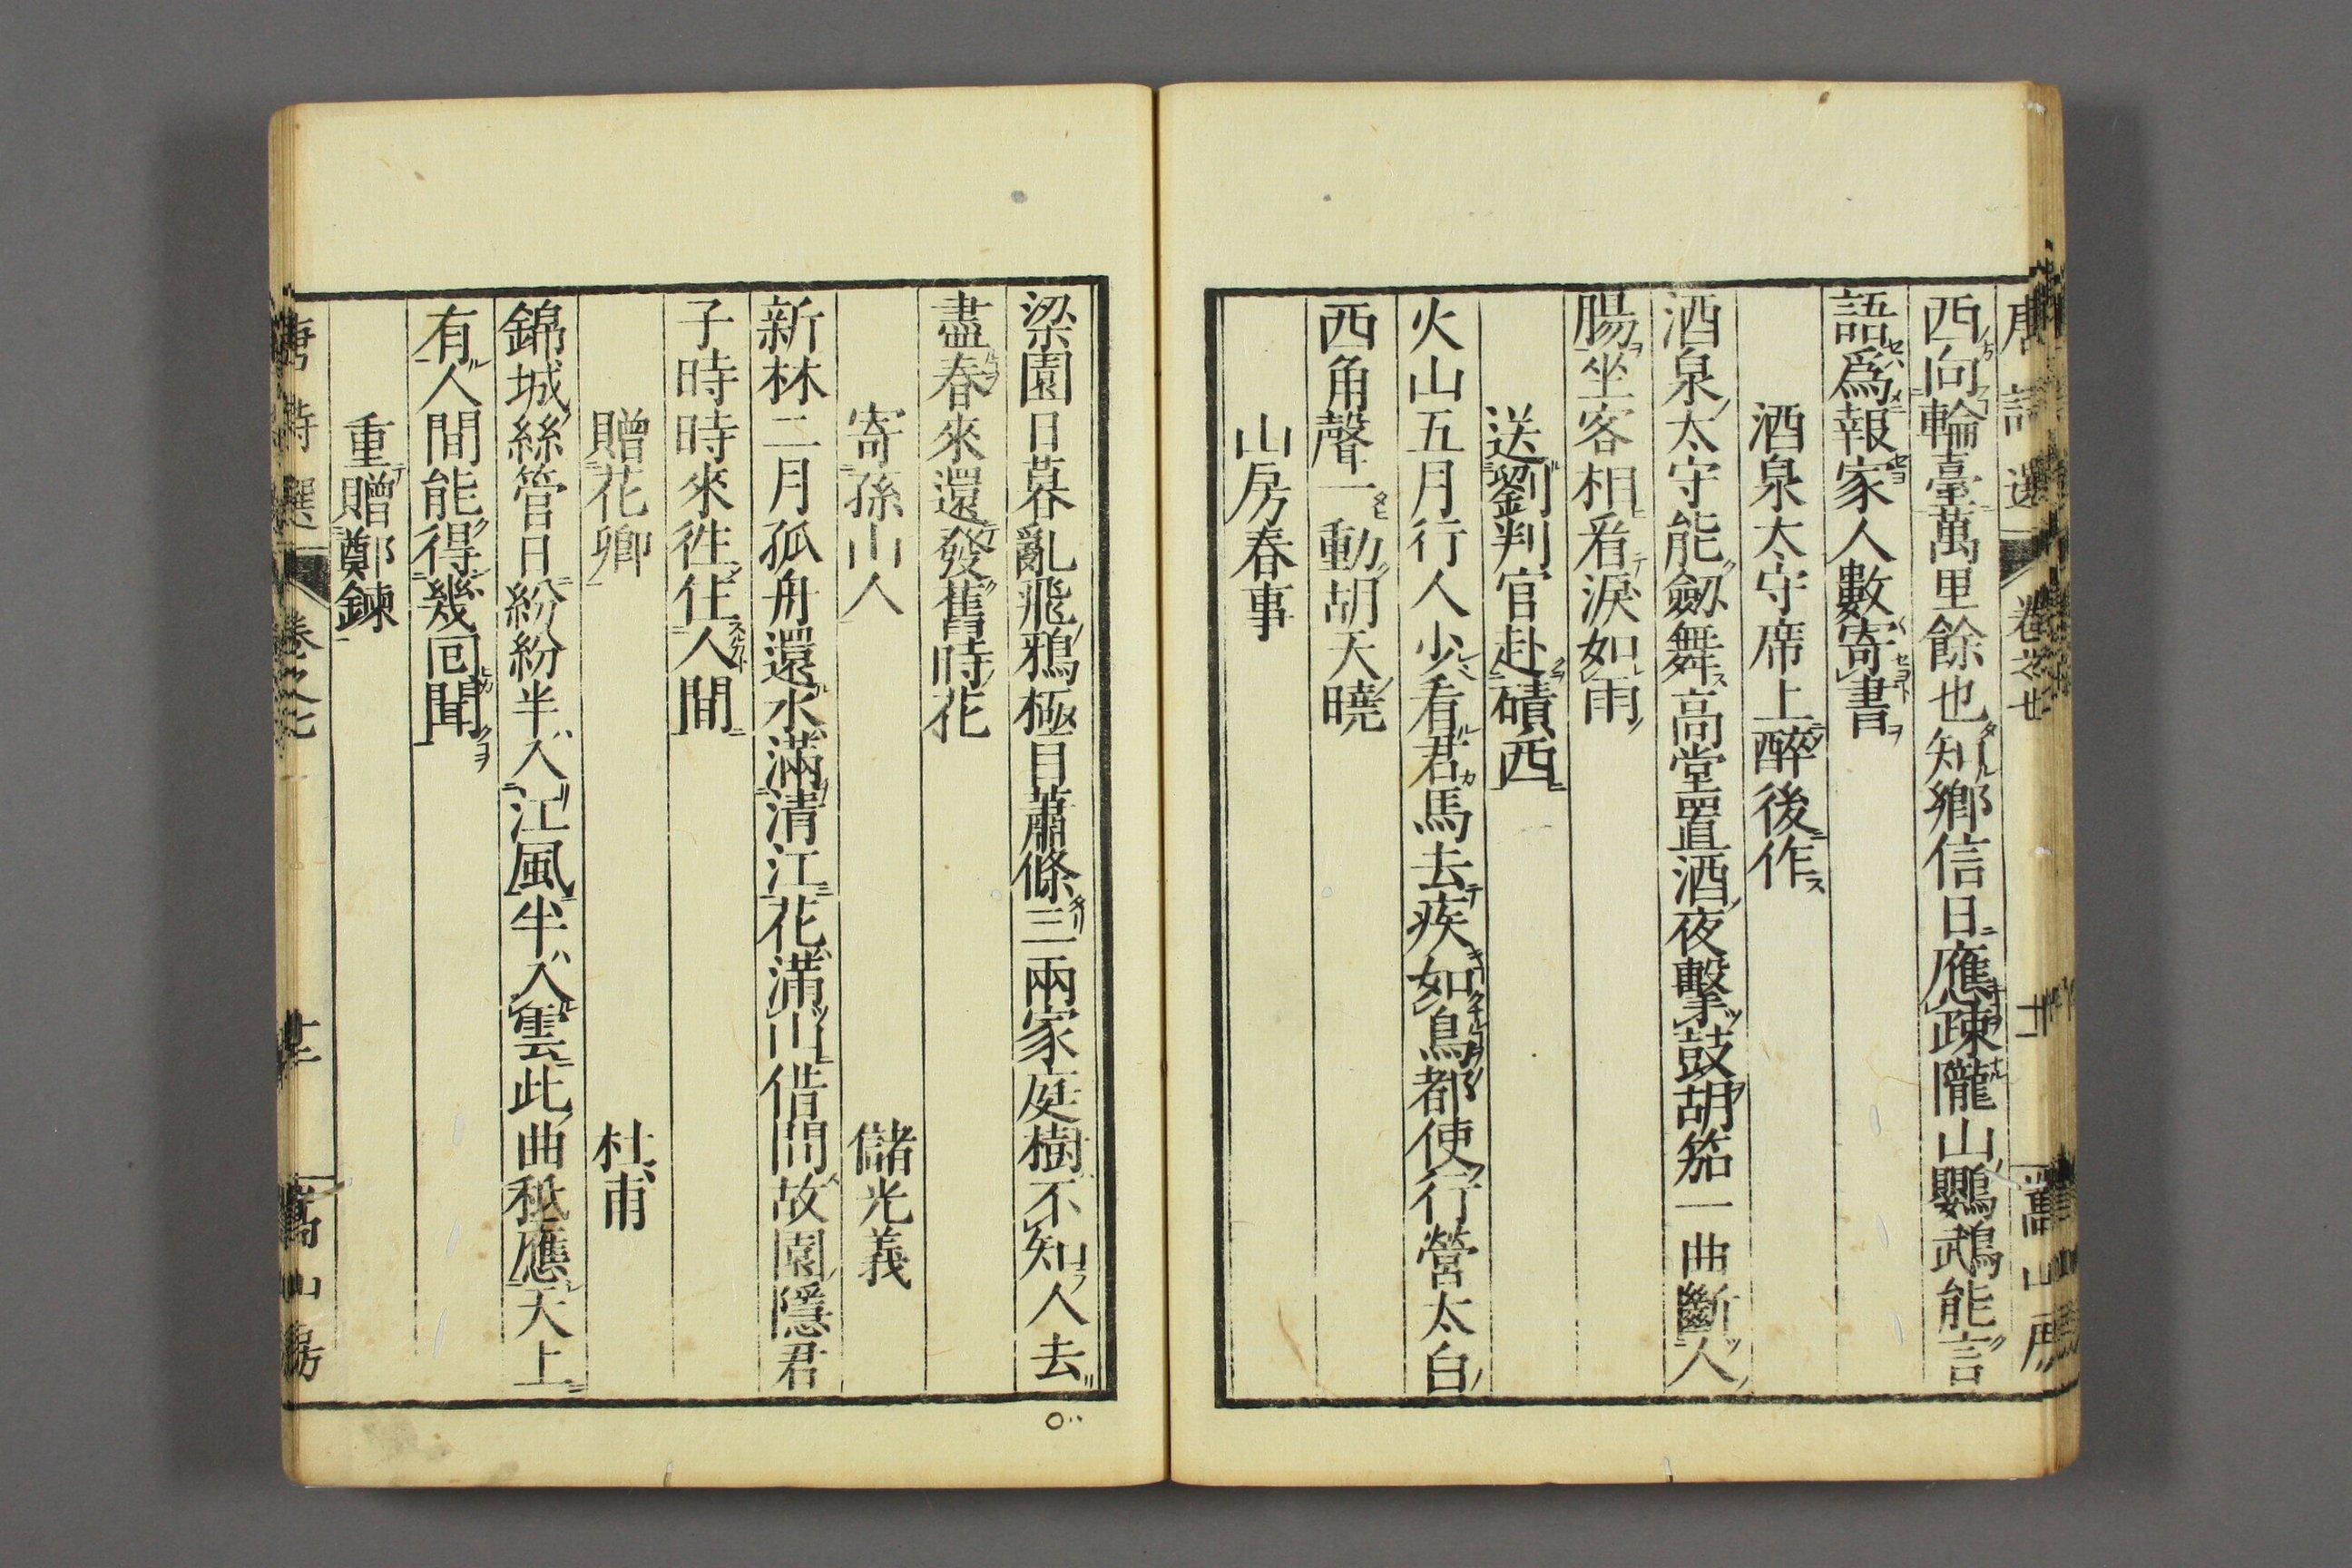 唐詩選 卷之七 廿二 嵩山房
西向輪臺萬里餘也知鄉信日應疎隴山鸚鵡能言
語爲報家人數寄書
酒泉大守席上醉後作
酒泉太守能劔舞高堂置酒夜擊鼓胡笳一曲斷人
腸坐客相看淚如雨
送劉判官赴磧西
火山五月行人少看君馬去疾如鳥都使行營太白
西角聲一動胡天曉
山房春事
梁園日暮亂飛鴉極目蕭條三兩家庭樹不知人去
盡春來還發舊時花
寄孫山人 儲光義
新林二月孤舟還水滿清江花滿山借問故園隱君
子時時來徃住人間
贈花卿 杜甫
錦城絲管日紛紛半入江風半入雲此曲秪應天上
有人間能得幾囘聞
重贈鄭鍊
唐詩選 卷之七 嵩山房